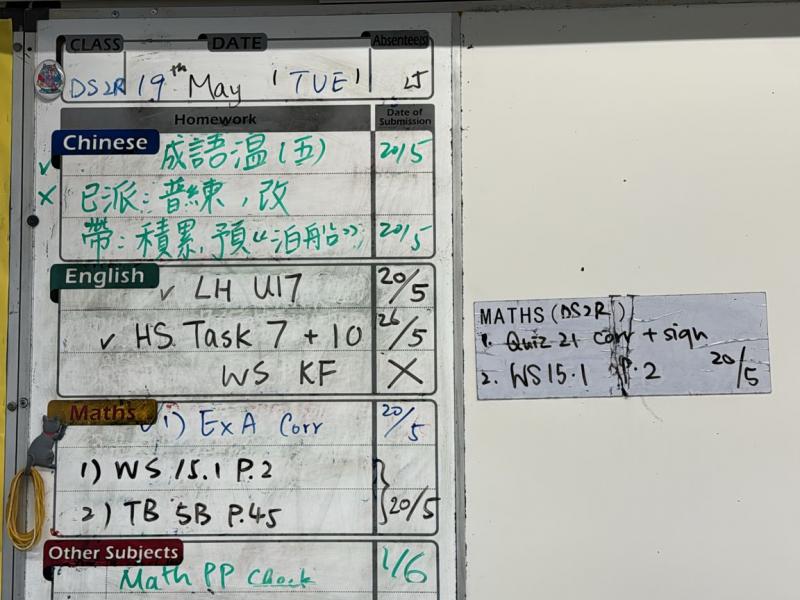 CLASS DATE Absentee(s)
DS2R 19th May (TUE)
Homework Date of Submission
Chinese 成語溫(五) 20/5
已派：普練，改
帶：積累，預“泊船” 20/5
English
✓ LH U17 20/5
✓ HS Task 7 + 10 26/5
WS KF X
Maths 1) Ex A Corr 20/5
1) WS 15.1 P.2
2) TB 5B P.45 20/5
Other Subjects
Math PP Check 1/6
MATHS (DS2R)
1. Quiz 21 corr + sign
2. WS 15.1 P.2 20/5